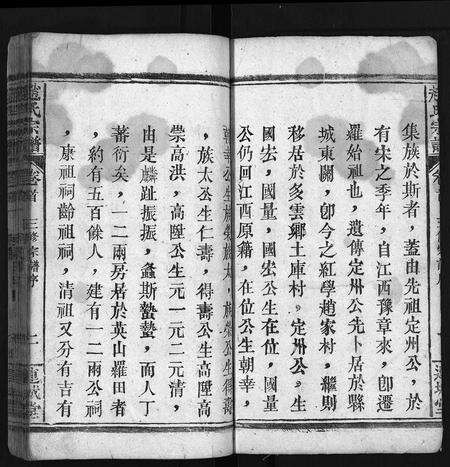 集族於斯者，蓋由先祖定州公，於
有宋之季年，自江西豫章來，卽遷
羅始祖也，遺傳定州公先卜居於縣
城東關，卽今之紅學趙家村，繼則
移居於多雲鄉土庫村，定州公，生
國宏，國量，國宏公生在位，國量
公仍回江西原籍，在位公生朝幸，
朝幸公生族榮族太，族榮公生得壽
，族太公生仁壽，得壽公生高陞高
崇高洪，高陞公生元一元二元清，
由是麟趾振振，螽斯蟄蟄，而人丁
蕃衍矣，一二兩房居於英山羅田者
，約有五百餘人，建有一二兩公祠
，康祖祠齡祖祠，清祖又分有吉有
趙氏宗譜
卷首
三修宗譜序
一